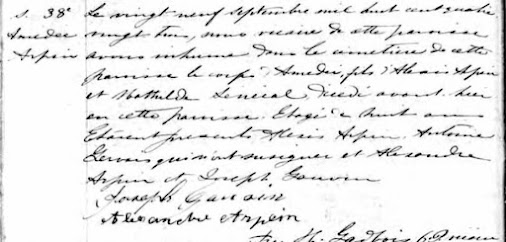 S. 38e
Amedée
Arpin
Le vingt neuf septembre mil huit cent quatre
vingt un, nous vicaire de cette paroisse
avons inhumé dans le cimetière de cette
paroisse le corps d'Amedée, fils d'Alexis Arpin
et Mathilde Sénécal, décédé avant hier
en cette paroisse. Etagé de huit ans
Etaient presents Alexis Arpin, Antoine
Gervais qui n'ont su signer et Alexandre
Arpin et Joseph Gauvin
Joseph Gauvin
Alexandre Arpein